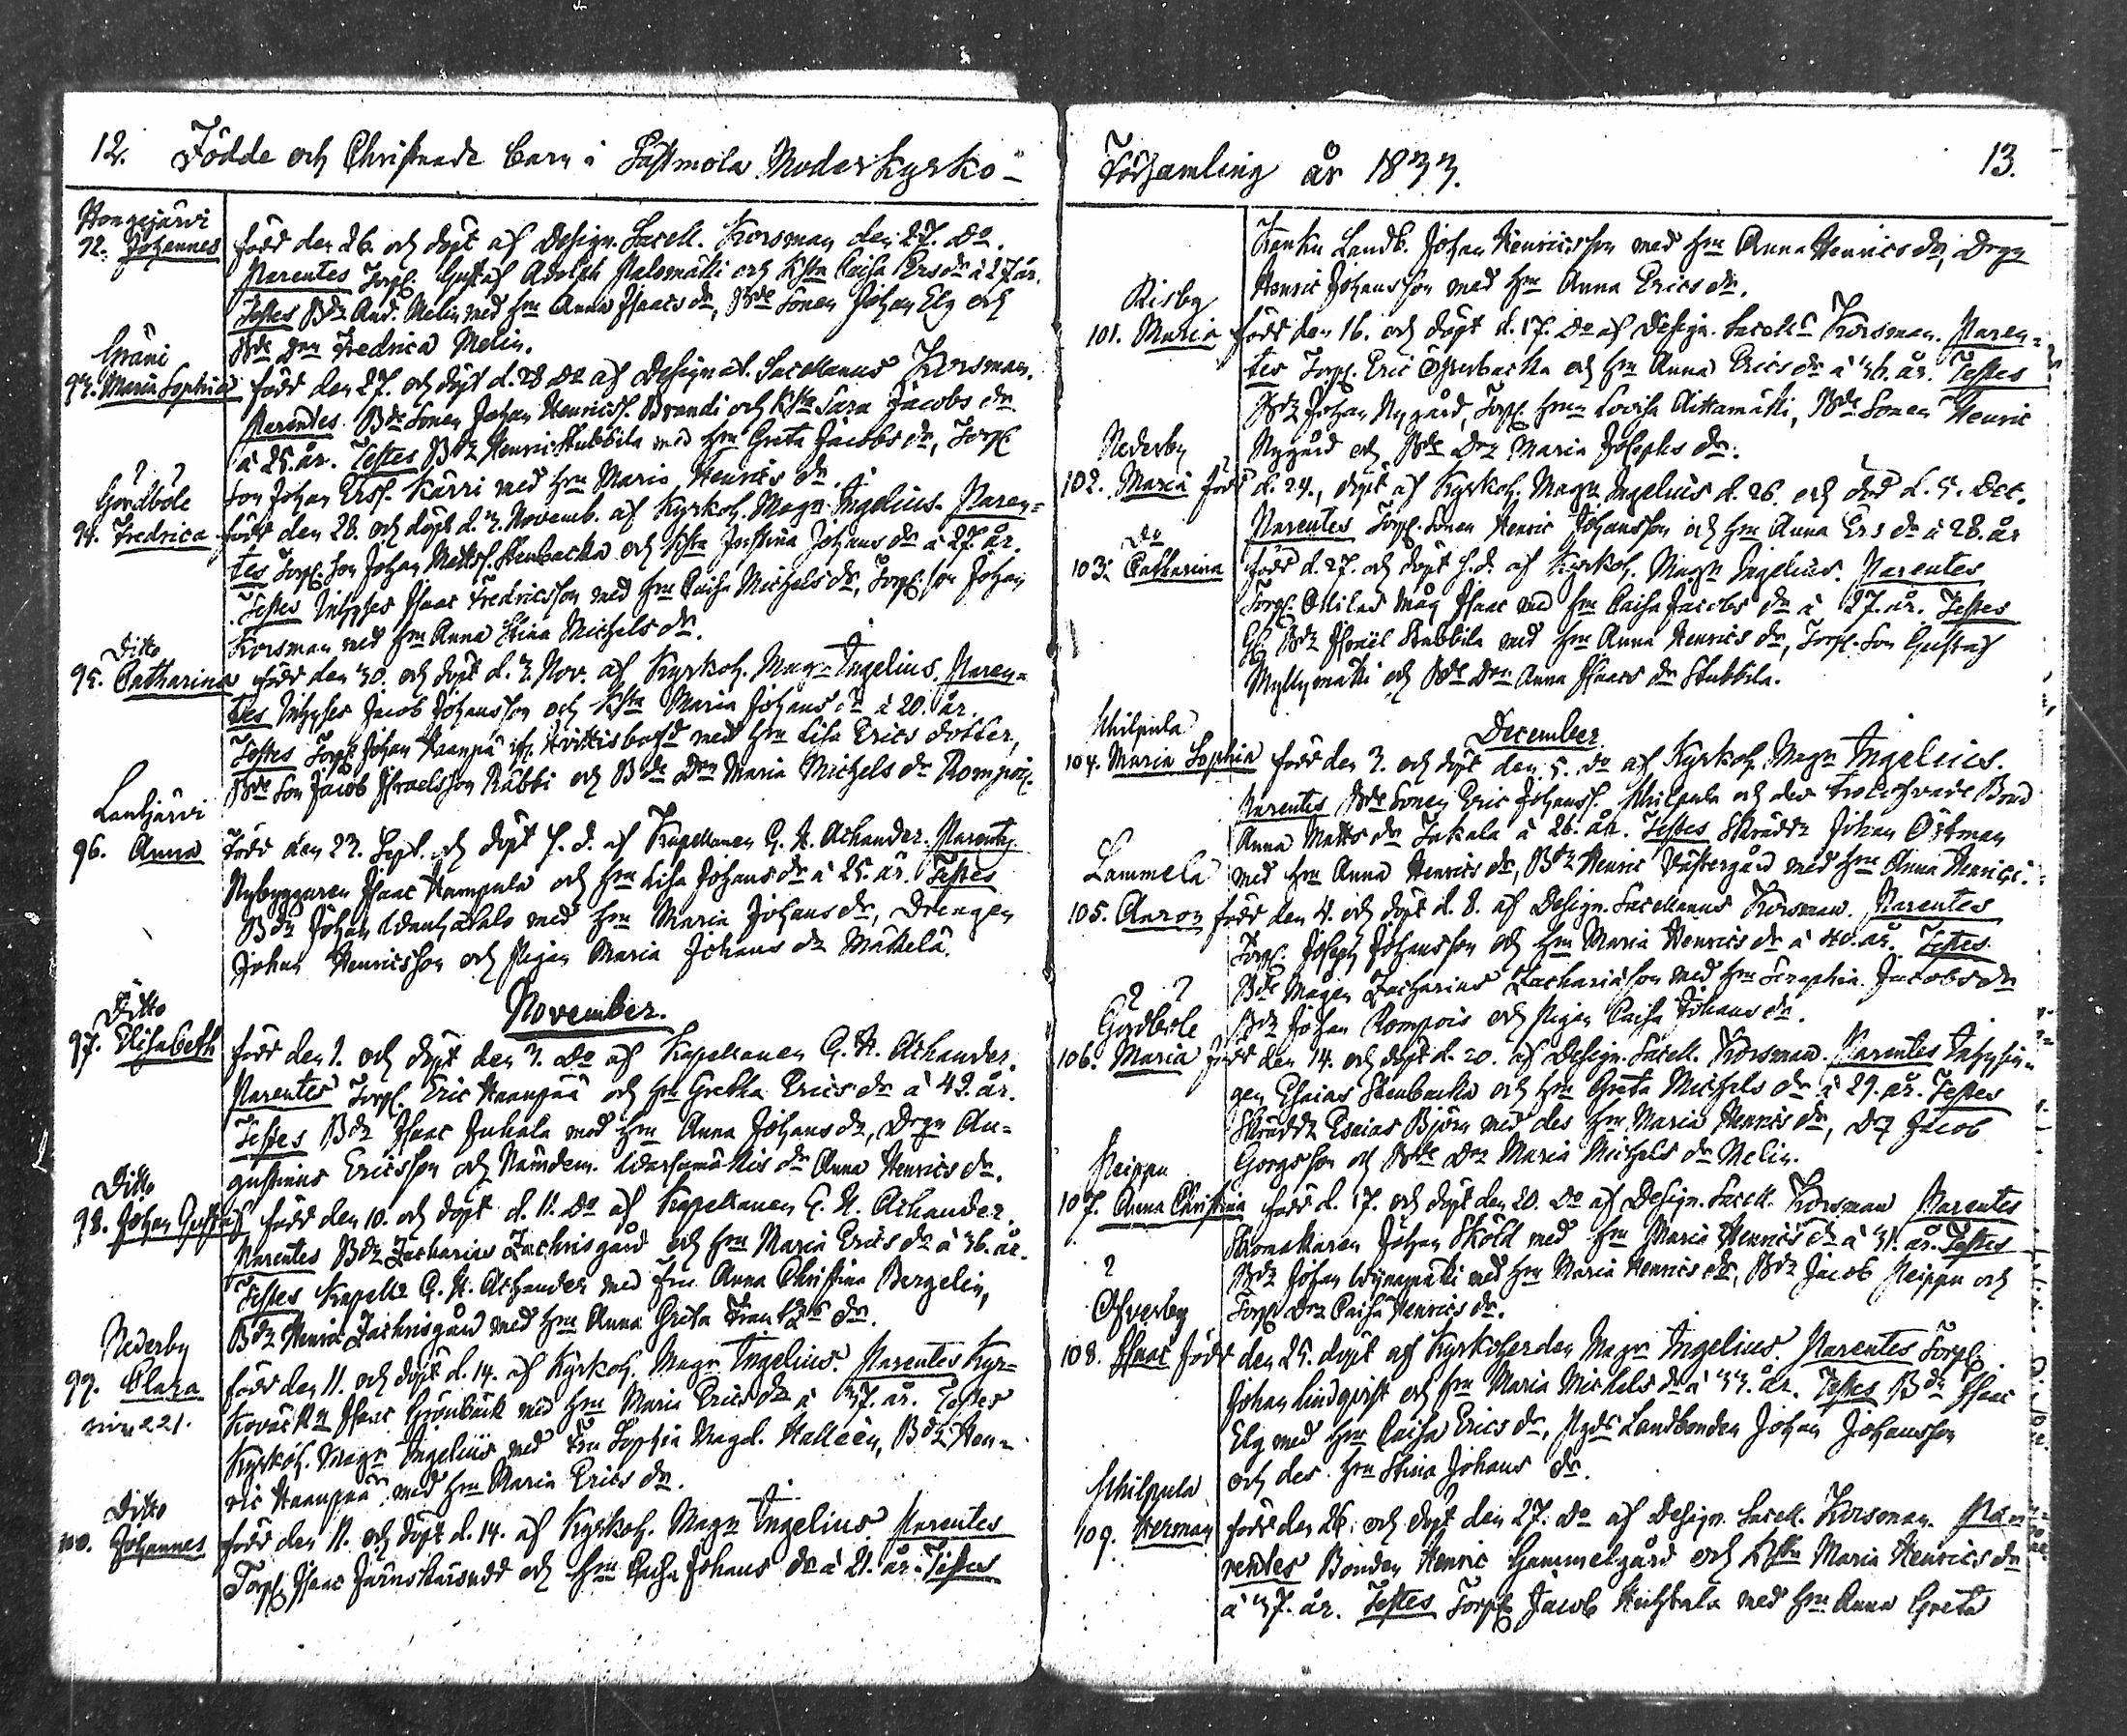 12. Födde och Christnade barn i Sastmola Moderkyrko-
Hongejärvi
92. Johannes född den 26. och döpt af Design. Sacell. Korsman den 27. do.
Parentes Torp. Gustaf Adolph Palomäki och Hstn Caisa Ersdr à 27 år.
Testes Bdn And. Melin med Hm Anna Isaacs dr, Bde Sonen Johan Elg och
Bde Drn Fredrica Melin.
Gräni
93. Maria Sophia född den 27. och döpt d. 28 do af Designat. Sacellanus Korsman.
Parentes Bde Sonen Johan Henricss. Brandi och Hstn Sara Jacobs dr
à 25. år. Testes Bdn Henric Stubbila med Hm Greta Jacobs dr, Torp.
Son Johan Erss. Karri med Hm Maria Henrics dr.
Gårdböle
94. Fredrica född den 28. och döpt d. 3. Novemb. af Kyrkoh. Magr Ingelius. Paren-
tes Torp. Son Johan Mattss. Stenbacka och Hstn Justina Johans dr à 27. år.
Testes Inhyses Isaac Fredricsson med Hm Caisa Michels dr, Torp. son Johan
Korsman med Hm Anna Stina Michels dr.
Ditto
95. Catharina född den 30. och döpt d. 3. Nov. af Kyrkoh. Magr Ingelius. Paren-
tes Inhyses Jacob Johansson och Hstn Maria Johans dr à 20. år.
Testes Torp. Johan Haanpä med Hm Lisa Erics dotter,
Bde Son Jacob Israelsson Räbbi och Bde Drn Maria Michels dr Rompois.
Lautjärvi
96. Anna Född den 23. Sept. och döpt s. d. af Kapellanen G. A. Achander. Parentes
Nybyggaren Isaac Kampula och Hm Lisa Johans dr à 25. år. Testes
Bdn Johan Wanhatalo med Hm Maria Johans dr, Drengen
Johan Henricsson och Pigan Maria Johans dr Mäkelä.
November.
Ditto
97. Elisabeth född den 1. och döpt den 3. do af Kapellanen G. A. Achander.
Parentes Torp. Eric Haanpää och Hm Gretha Erics dr à 42. år.
Testes Bdn Isaac Juhala med Hm Anna Johans dr, Drgn Au-
gustinus Ericsson och Nämdem. Warsamäkis dr Anna Henrics dr.
Ditto
98. Johan Gustaf född den 10. och döpt d. 11. do af Kapellanen G. A. Achander.
Parentes Bdn Zacharias Zachrisgård och Hm Maria Erics dr à 36. år.
Testes Kapelln G. A. Achander med Fru Anna Christina Bergelin,
Bdn Henric Zachrisgård med Hm Anna Greta Frans dr.
Nederby
99. Clara född den 11. och döpt d. 14. af Kyrkoh. Magr Ingelius. Parentes Kyr-
kovächtn Isaac Grönbäck med Hm Maria Erics dr à 37. år. Testes
Kyrkoh. Magr Ingelius med Fru Sophia Magd. Halleen, Bdn Hen-
ric Haanpää med Hm Maria Erics dr.
Ditto
100. Johannes född den 11. och döpt d. 14. af Kyrkoh. Magr Ingelius. Parentes
Torp. Isaac Järnskärsudd och Hm Caisa Johans dr à 21. år. Testes
Församling år 1833. 13.
Landb. Johan Henricsson med Hm Anna Henrics dr, Drgn
Henric Johansson med Hm Anna Erics dr.
Risby
101. Maria född den 16. och döpt d. 17. do af Design. Sacells Korsman. Paren-
tes Torp. Eric Öfverbacka och Hm Anna Erics dr à 36. år. Testes
Bdn Johan Nygård, Torp. Hm Lovisa Aittamäki, Bde Sonen Henric
Nygård och Bde Drn Maria Josephs dr.
Nederby
102. Maria född d. 24., döpt af Kyrkoh. Magr Ingelius d. 26. och död d. 5. Dec.
Parentes Torp. Sonen Henric Johansson och Hm Anna Ers dr à 28. år
Do
103. Catharina född d. 27. och döpt s. d. af Kyrkoh. Magr Ingelius. Parentes
Torp. Ollilas Måg Isaac med Hm Caisa Jacobs dr à 27. år. Testes
Bdn Israel Stubbila med Hm Anna Henrics dr, Torp. Son Gustaf
Myllymäki och Bde Drn Anna Isaacs dr Stubbila.
December
Philpula
104. Maria Sophia född den 3. och döpt den 5. do af Kyrkoh. Magr Ingelius.
Parentes Bde Sonen Eric Johanss. Philpula och des trolofvade Brud
Anna Matts dr Jakala à 26. år. Testes Skräddn Johan Östman
med Hm Anna Henrics dr, Bdn Henric Västergård med Hm Anna Henrics.
Lammela
105. Aaron född den 4. och döpt d. 8. af Design. Sacellanus Korsman. Parentes
Torp. Joseph Johansson och Hm Maria Henrics dr à 40. år. Testes
Bde Mågen Zacharias Zachariasson med Hm Seraphia Jacobs dr
Bdn Johan Rompois och Pigan Caisa Johans dr.
Gårdböle
106. Maria född den 14. och döpt d. 20. af Design. Sacell. Korsman. Parentes Inhysin-
gen Esaias Stenbacka och Hm Greta Michels dr à 29. år. Testes
Skräddn Esaias Björn med des Hm Maria Henrics dr, Dr Jacob
Göregsson och Bde Drn Maria Michels dr Melin.
Peippu
107. Anna Christina född d. 17. och döpt den 20. do af Design. Sacell. Korsman Parentes
Skomakaren Johan Sköld med Hm Maria Henrics dr à 31. år. Testes
Bdn Johan med Hm Maria Henrics dr, Bdn Jacob Peippu och
Torp. Drn Caisa Henrics dr.
Ofverby
108. Isaac född den 25. döpt af Kyrkoherden Magr Ingelius Parentes Torp.
Johan Lindqvist och Hm Maria Michels dr à 33. år. Testes Bdn Isaac
Elg med Hm Caisa Erics dr, Landbonden Johan Johansson
och des Hm Stina Johans dr.
Philpula
109. Herman född den 26. och döpt den 27. do af Design. Sacell. Korsman. Pa-
rentes Bonden Henric Gammelgård och Hstn Maria Henrics dr
à 37. år. Testes Torp. Jacob Huhtala med Hm Anna Greta